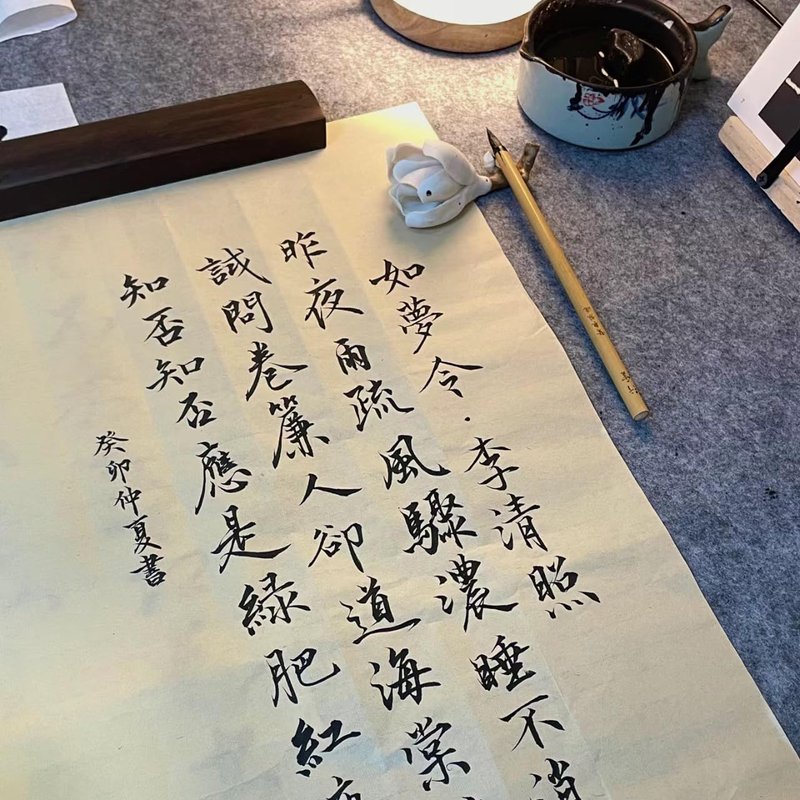 如夢令·李清照
昨夜雨疏風驟濃睡不消
試問卷簾人卻道海棠
知否知否應是綠肥紅瘦
癸卯仲夏書